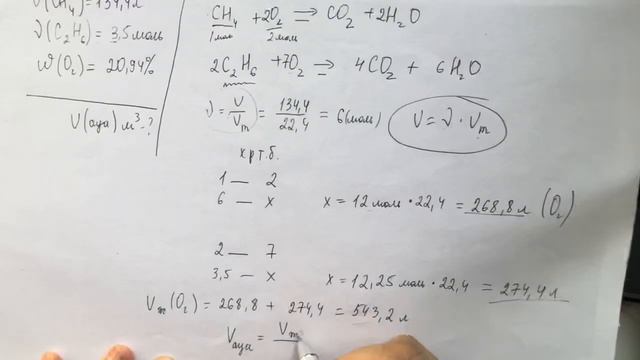 V(CH₄) = 134,4 л
ν(C₂H₆) = 3,5 моль
ω(O₂) = 20,94%
V(ауа) м³ - ?
CH₄ + 2O₂ ⇒ CO₂ + 2H₂O
1моль 2моль
2C₂H₆ + 7O₂ ⇒ 4CO₂ + 6H₂O
ν = V/Vm = 134,4/22,4 = 6(моль)
V = ν · Vm
х р т. б.
1 — 2
6 — x
x = 12 моль * 22,4 = 268,8 л (O₂)
2 — 7
3,5 — x
x = 12,25 моль * 22,4 = 274,4 л
Vm(O₂) = 268,8 + 274,4 = 543,2 л
Vауа = Vm